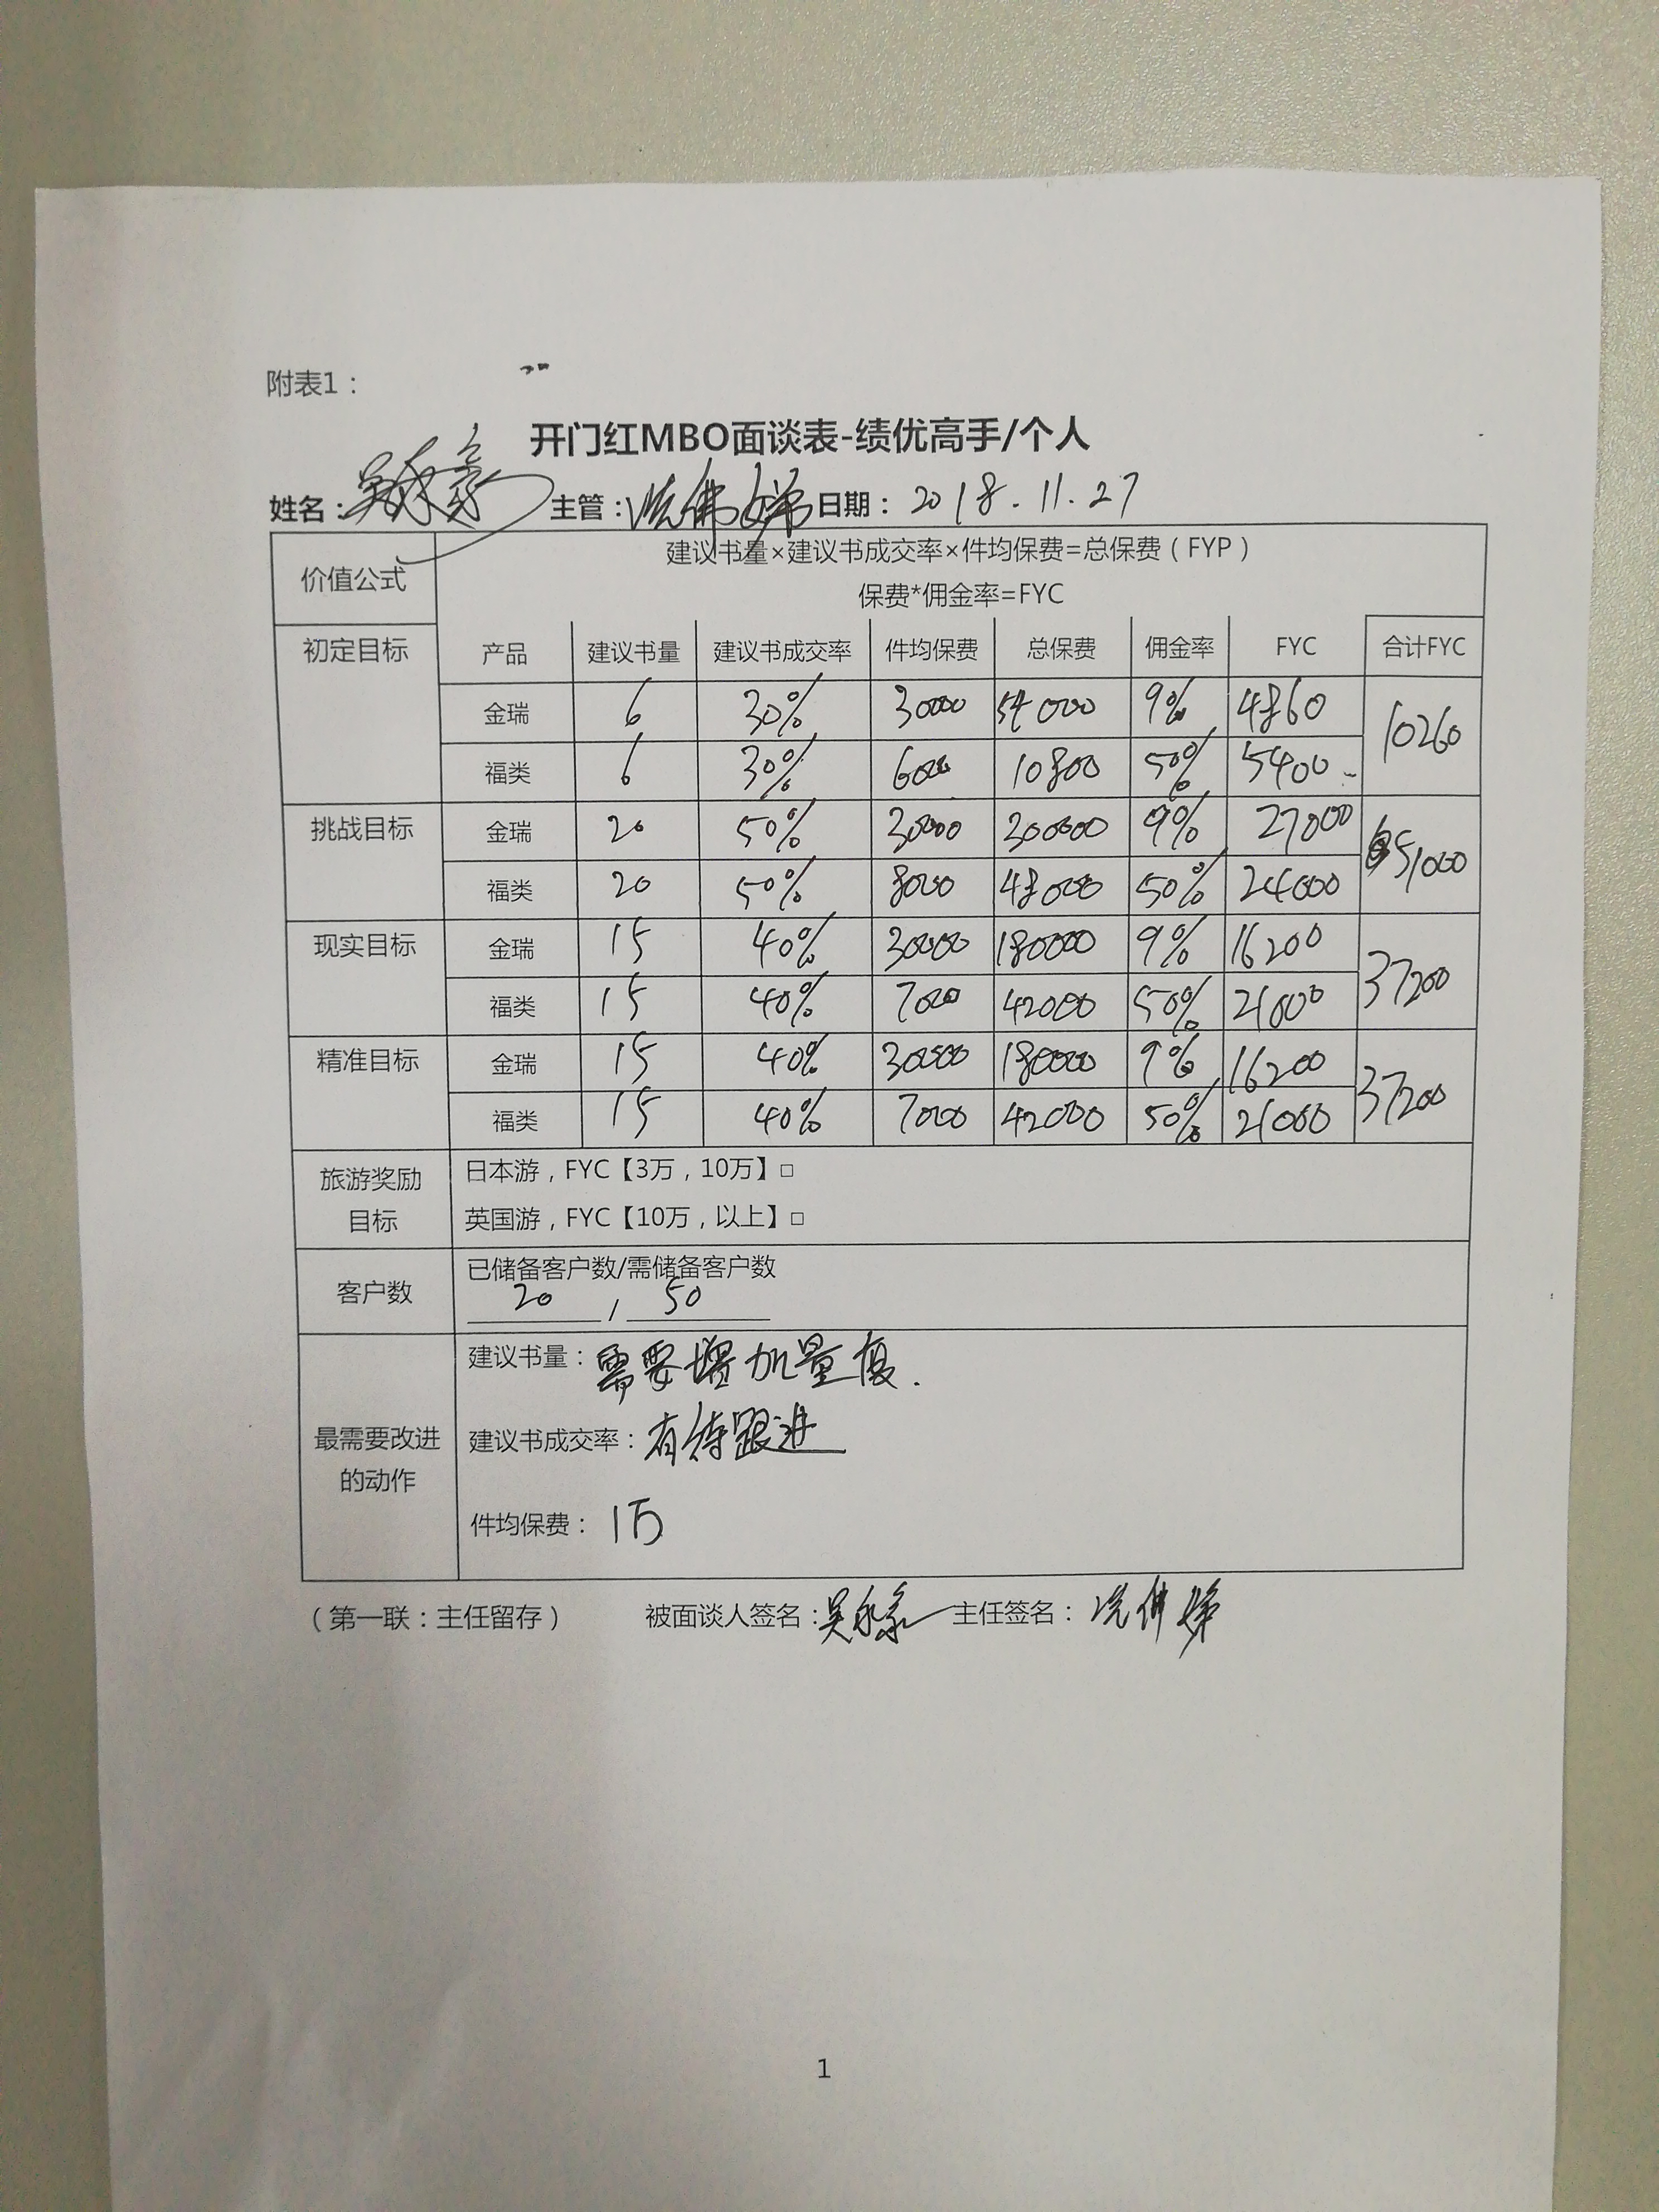 附表1：
开门红MBO面谈表-绩优高手/个人
姓名： 主管： 日期： 2018.11.27
价值公式 建议书量×建议书成交率×件均保费=总保费（FYP）
保费*佣金率=FYC
初定目标 产品 建议书量 建议书成交率 件均保费 总保费 佣金率 FYC 合计FYC
金瑞 6 30% 30000 54000 9% 4860 10260
福类 6 30% 6000 10800 50% 5400
挑战目标 金瑞 20 50% 30000 300000 9% 27000 51000
福类 20 50% 8000 48000 50% 24000
现实目标 金瑞 15 40% 30000 180000 9% 16200 37200
福类 15 40% 7000 42000 50% 21000
精准目标 金瑞 15 40% 30000 180000 9% 16200 37200
福类 15 40% 7000 42000 50% 21000
旅游奖励目标 日本游，FYC【3万，10万】□
英国游，FYC【10万，以上】□
客户数 已储备客户数/需储备客户数
20 / 50
建议书量：需要增加量度.
最需要改进的动作 建议书成交率：有待跟进
件均保费： 1万
（第一联：主任留存） 被面谈人签名： 主任签名：
1